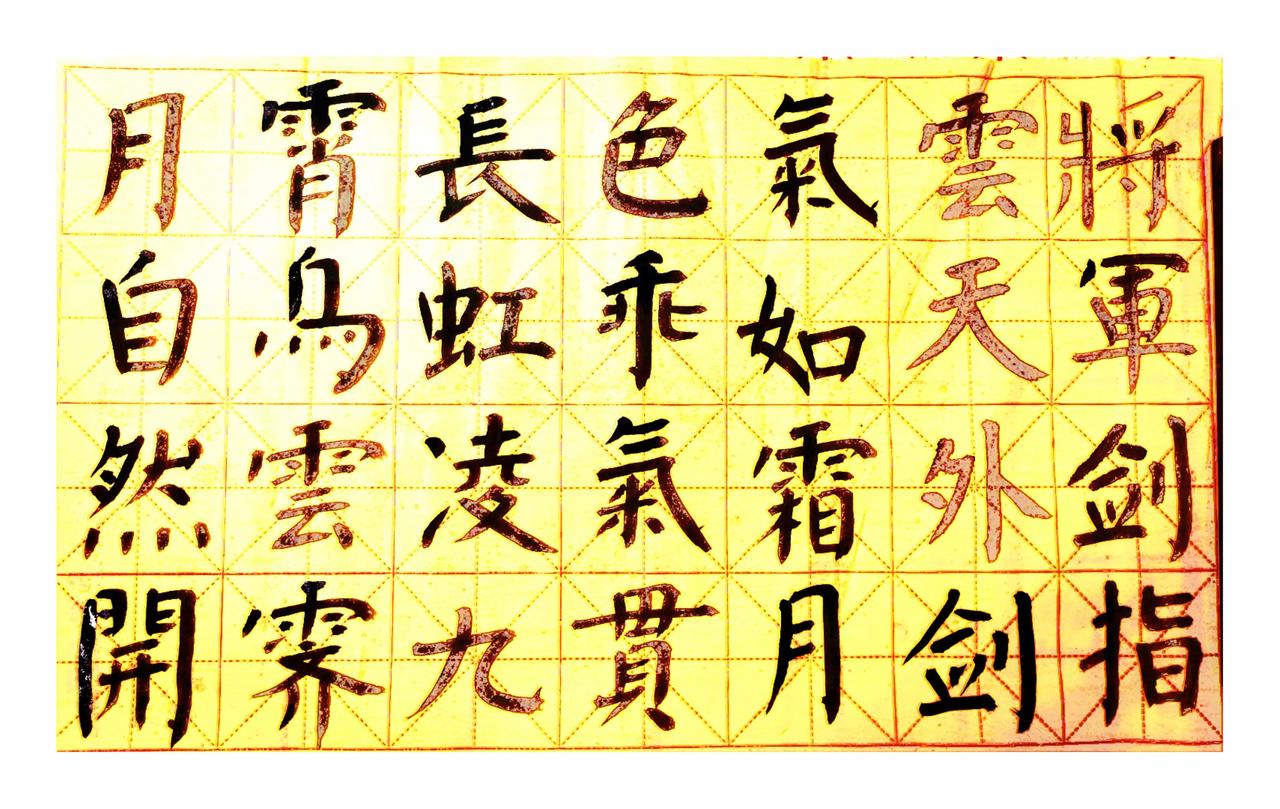 將軍剑指
雲天外剑
氣如霜月
色乖氣貫
長虹凌九
霄鳥雲霁
月自然開